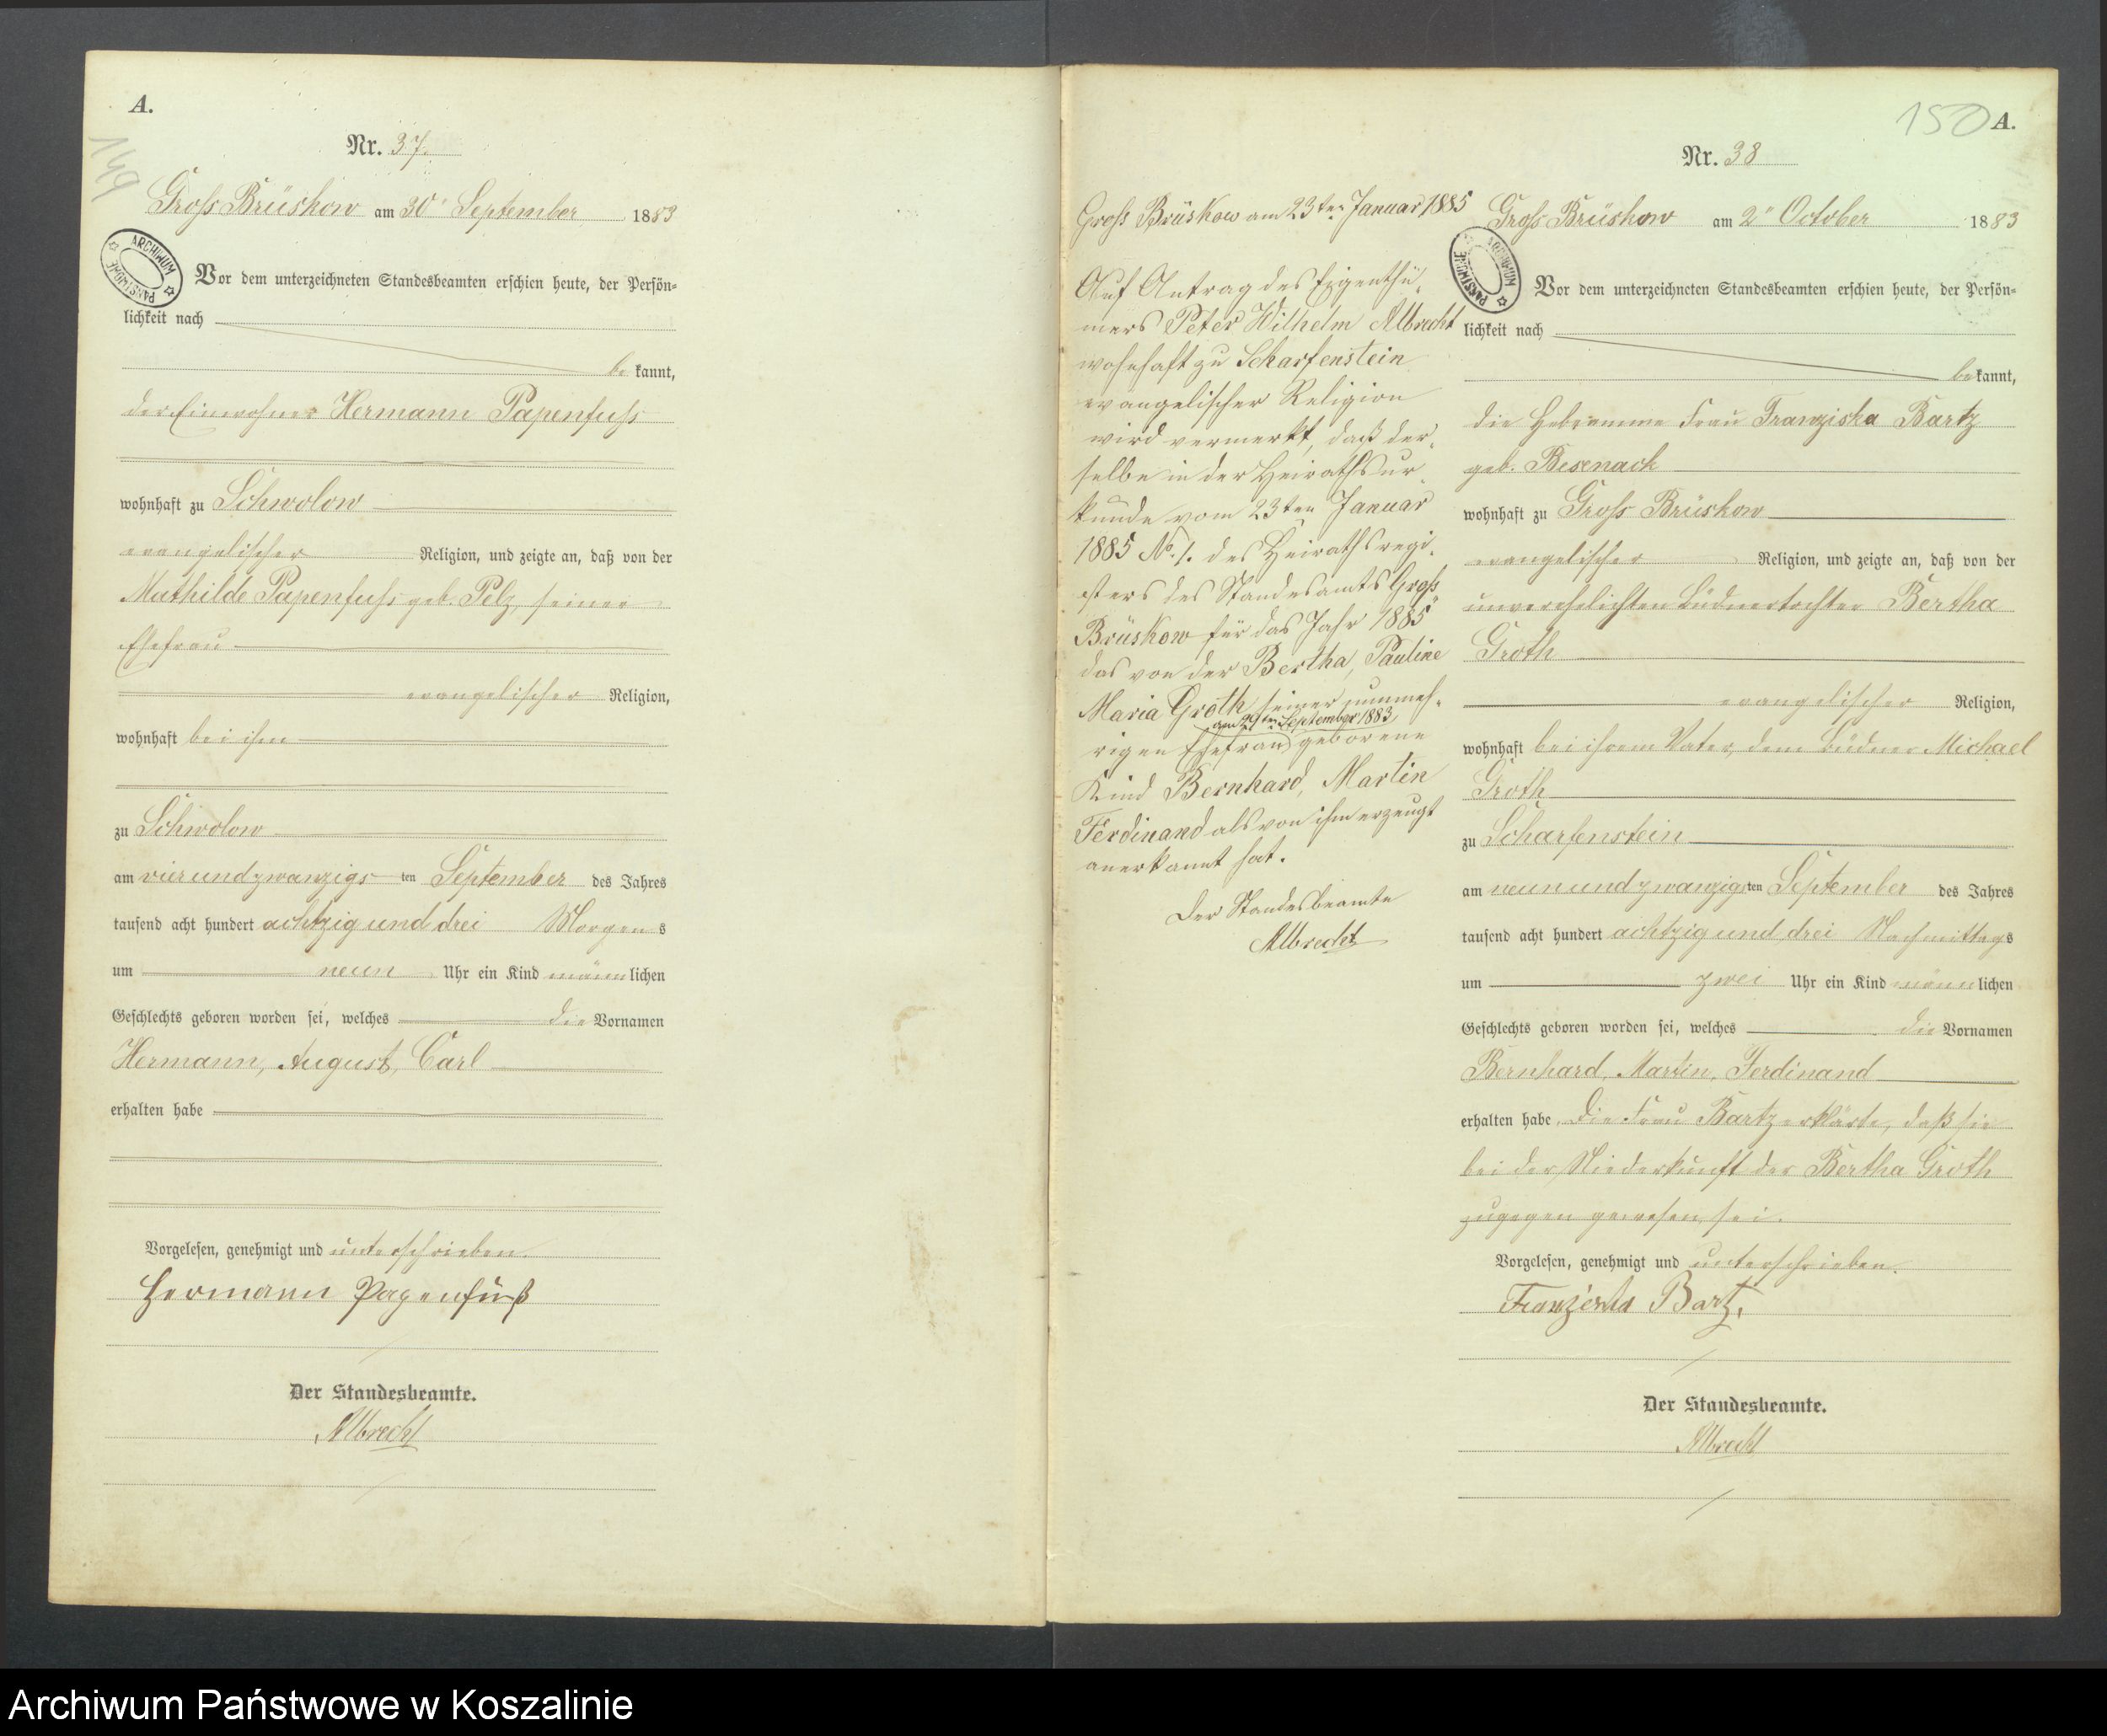 A.
149
Nr. 37.
Gross Brüskow am 30" September 1883
ARCHIWUM PAŃSTWOWE
Vor dem unterzeichneten Standesbeamten erschien heute, der Persön=
lichkeit nach
be kannt,
der Einwohner Hermann Papenfuss
wohnhaft zu Schwolow
evangelischer Religion, und zeigte an, daß von der
Mathilde Papenfuss geb. Pelz, seiner
Ehefrau
evangelischer Religion,
wohnhaft bei ihm
zu Schwolow
am vierundzwanzigs ten September des Jahres
tausend acht hundert achtzig und drei Morgens
um neun Uhr ein Kind männlichen
Geschlechts geboren worden sei, welches die Vornamen
Hermann, August, Carl
erhalten habe
Vorgelesen, genehmigt und unterschrieben.
Hermann Papenfuß
Der Standesbeamte.
Albrecht
Gross Brüskow am 23ten Januar 1885
Auf Antrag des Eigenthü-
mers Peter Wilhelm Albrecht
wohnhaft zu Scharfenstein
evangelischer Religion
wird vermerkt, daß der-
selbe in der Heirathsur-
kunde vom 23ten Januar
1885 No. 1. des Heirathsregi-
sters des Standesamts Gross
Brüskow für das Jahr 1885
das von der Bertha, Pauline
Maria Groth seiner nunmeh-
am 29ten September 1883
rigen Ehefrau geborene
Kind Bernhard, Martin
Ferdinand als von ihm erzeugt
anerkannt hat.
Der Standesbeamte
Albrecht
150
A.
Nr. 38
Gross Brüskow am 2" October 1883
ARCHIWUM PAŃSTWOWE
Vor dem unterzeichneten Standesbeamten erschien heute, der Persön=
lichkeit nach
bekannt,
die Hebeamme Frau Franziska Bartz
geb. Besenack
wohnhaft zu Gross Brüskow
evangelischer Religion, und zeigte an, daß von der
unverehelichten Büdnertochter Bertha
Groth
evangelischer Religion,
wohnhaft bei ihrem Vater, dem Büdner Michael
Groth
zu Scharfenstein
am neunundzwanzigsten September des Jahres
tausend acht hundert achtzig und drei Nachmittags
um zwei Uhr ein Kind männlichen
Geschlechts geboren worden sei, welches die Vornamen
Bernhard, Martin, Ferdinand
erhalten habe. Die Frau Bartz erklärte, daß sie
bei der Niederkunft der Bertha Groth
zugegen gewesen sei.
Vorgelesen, genehmigt und unterschrieben.
Franziska Bartz.
Der Standesbeamte.
Albrecht
Archiwum Państwowe w Koszalinie